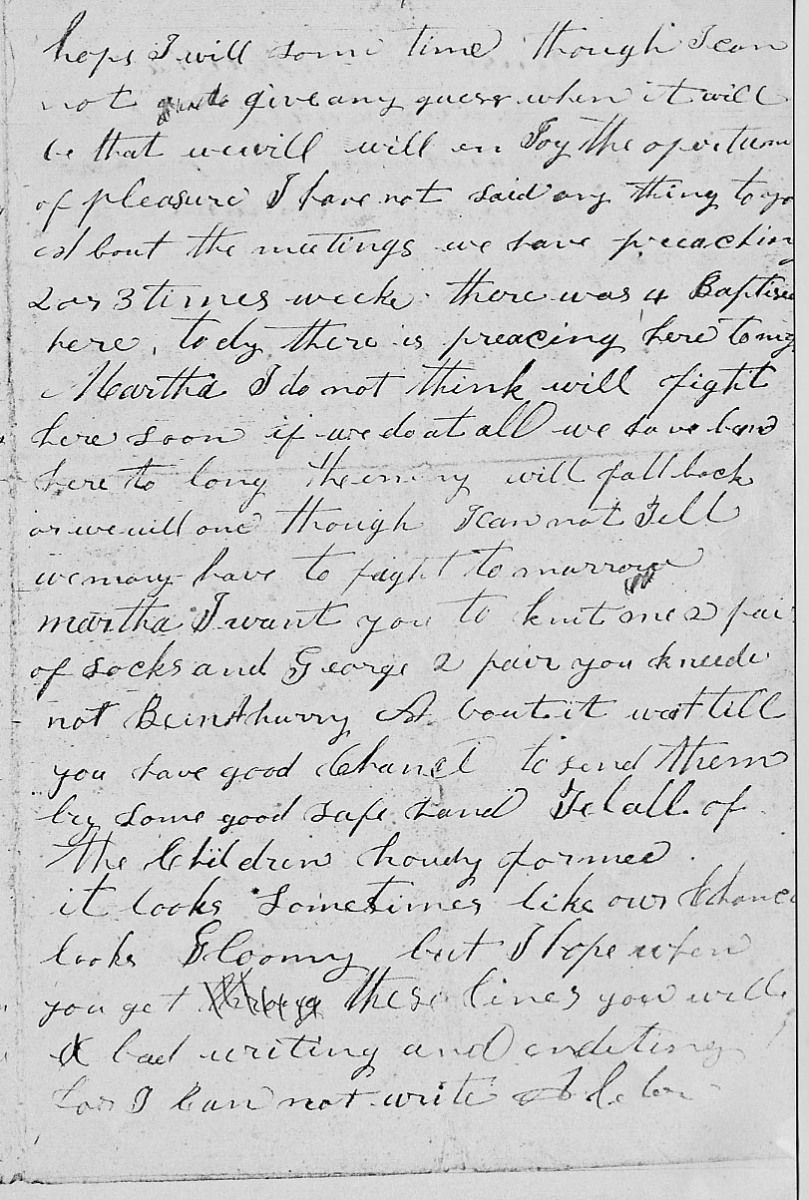 hops I will some time though I can
not give any guess when it will
be that we will will en Joy the oportun
of pleasure I have not said any thing to yo
a bout the meetings we have preaching
2 or 3 times week there was 4 Baptised
here to dy there is preacing here to
Martha I do not think will fight
here soon if we do at all we have ben
here to long the will fall back
or we will one though I can not Tell
we may have to fight to marrow
martha I want you to knit me 2 pair
of socks and George 2 pair you kneede
not Be in A hurry A bout it wat till
you have good Chance to send them
by some good safe hand Tel all of
the Children howdy for mee
it looks sometimes like our Chance
looks Gloomy but I hope when
you get these lines you will
bad writing and inditing
for I Can not write A